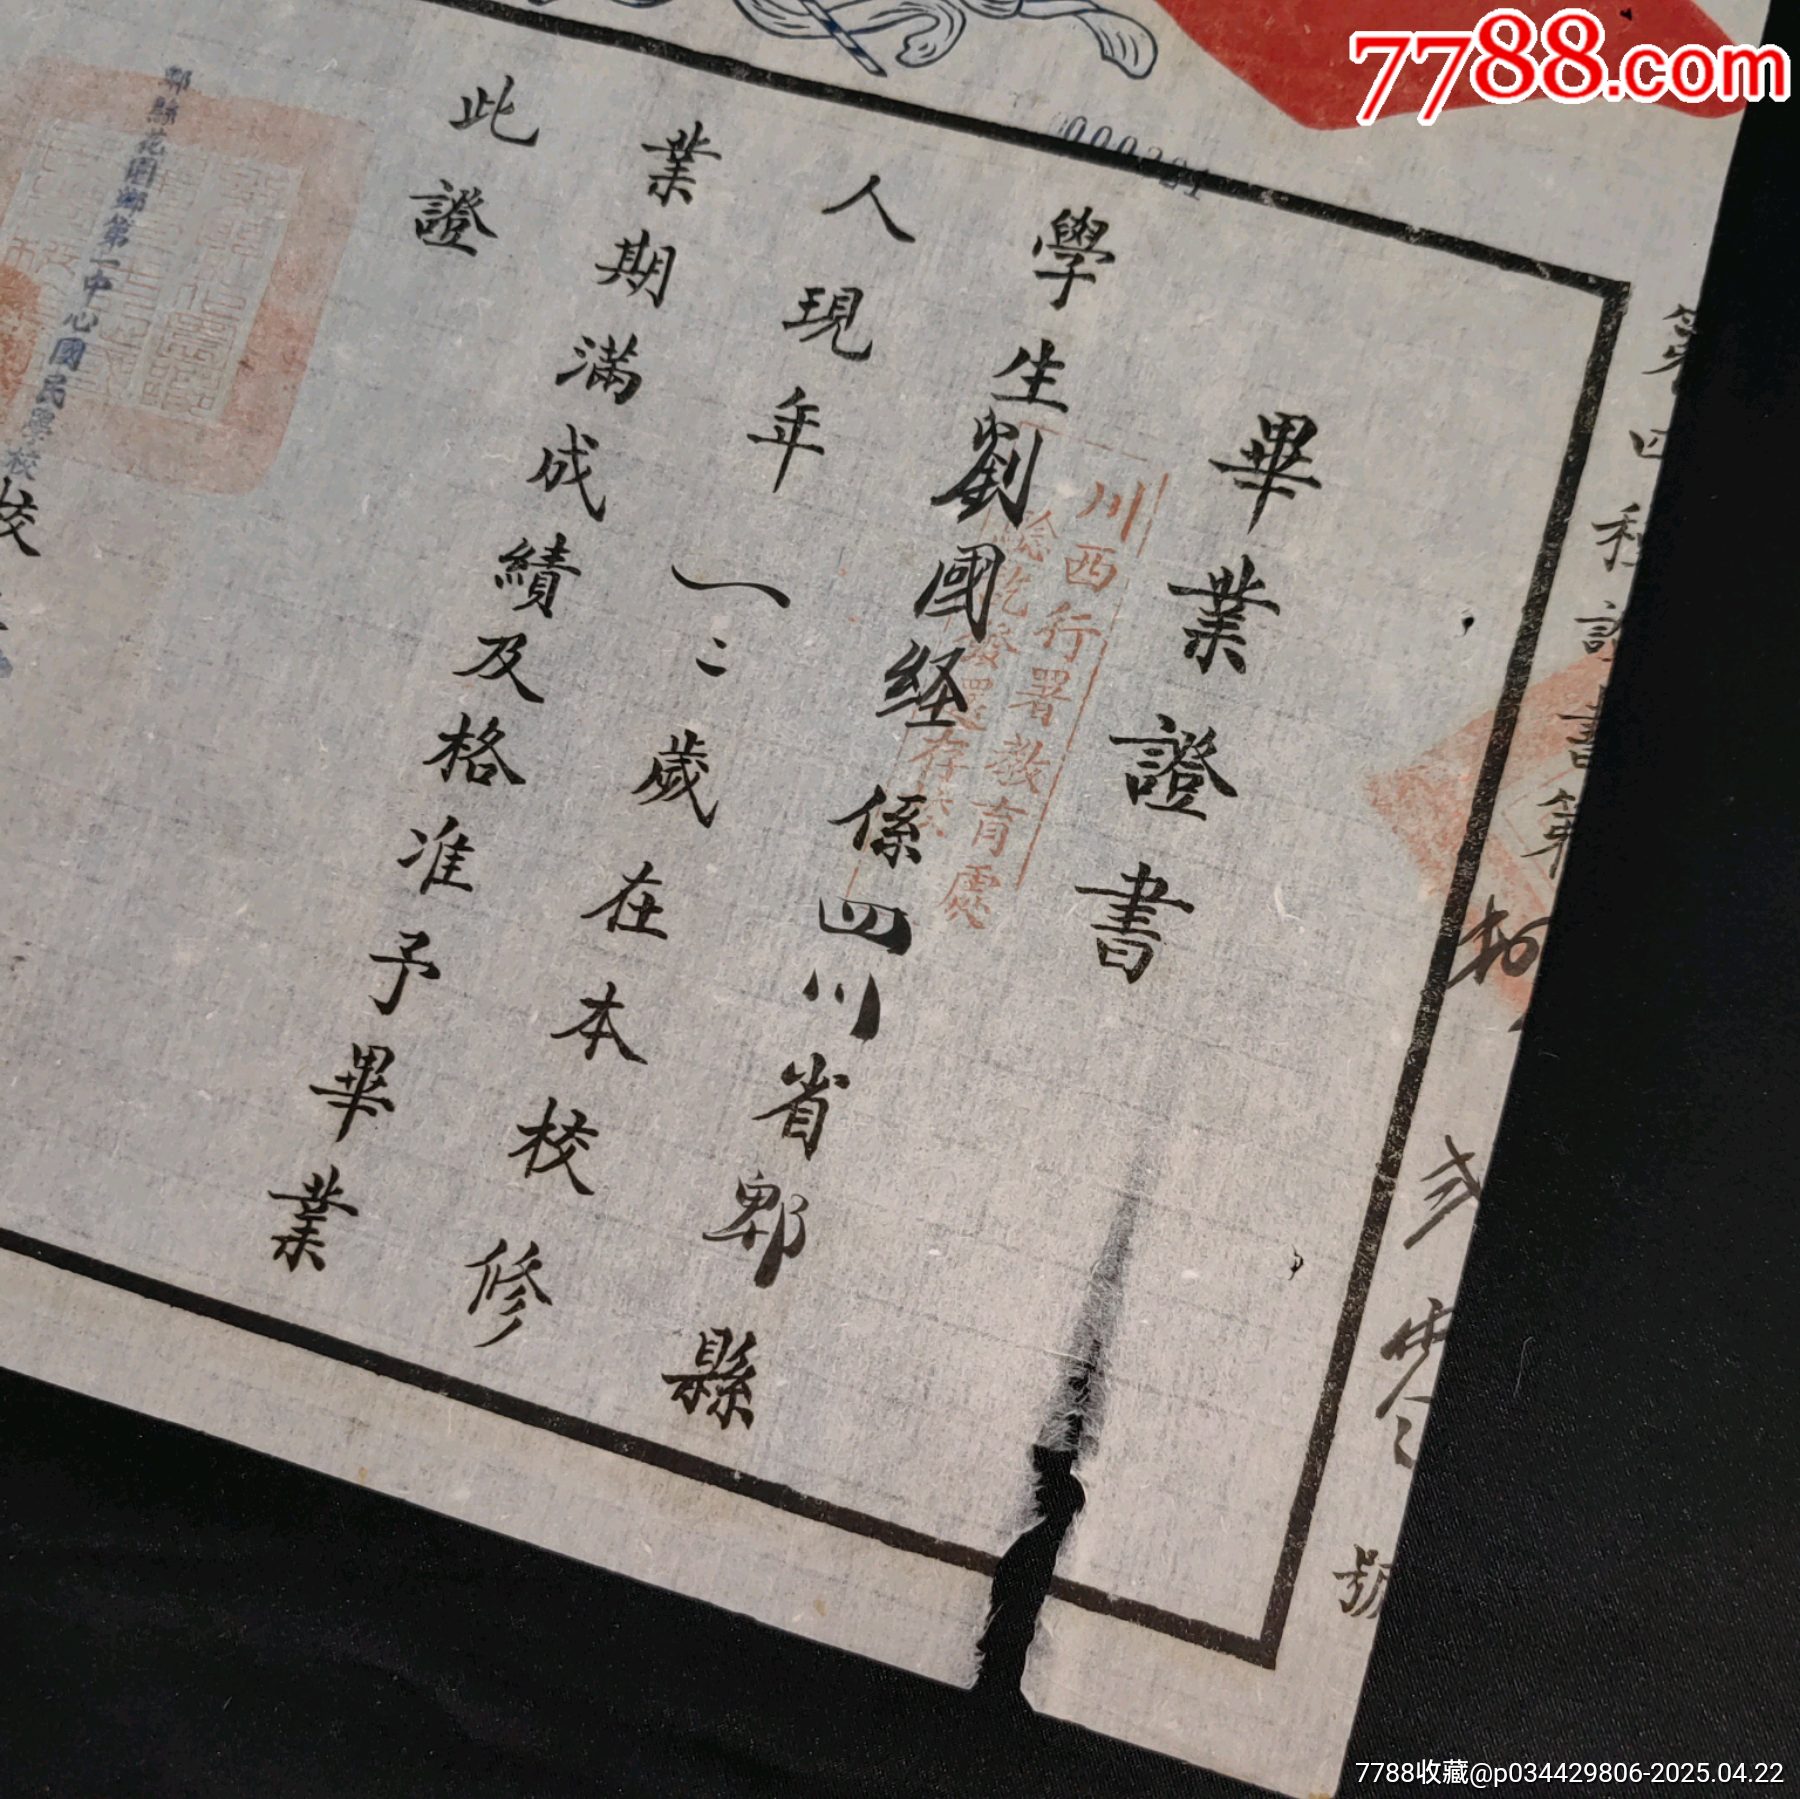 7788.com
000391
畢業證書
學生劉國経係四川省郫縣
人現年一二歲在本校修
業期滿成績及格准予畢業
此證
川西行署教育處
驗訖發還存
郫縣花園鄉第一中心國民學校
校
第四種證書第
號
7788收藏@p034429806-2025.04.22